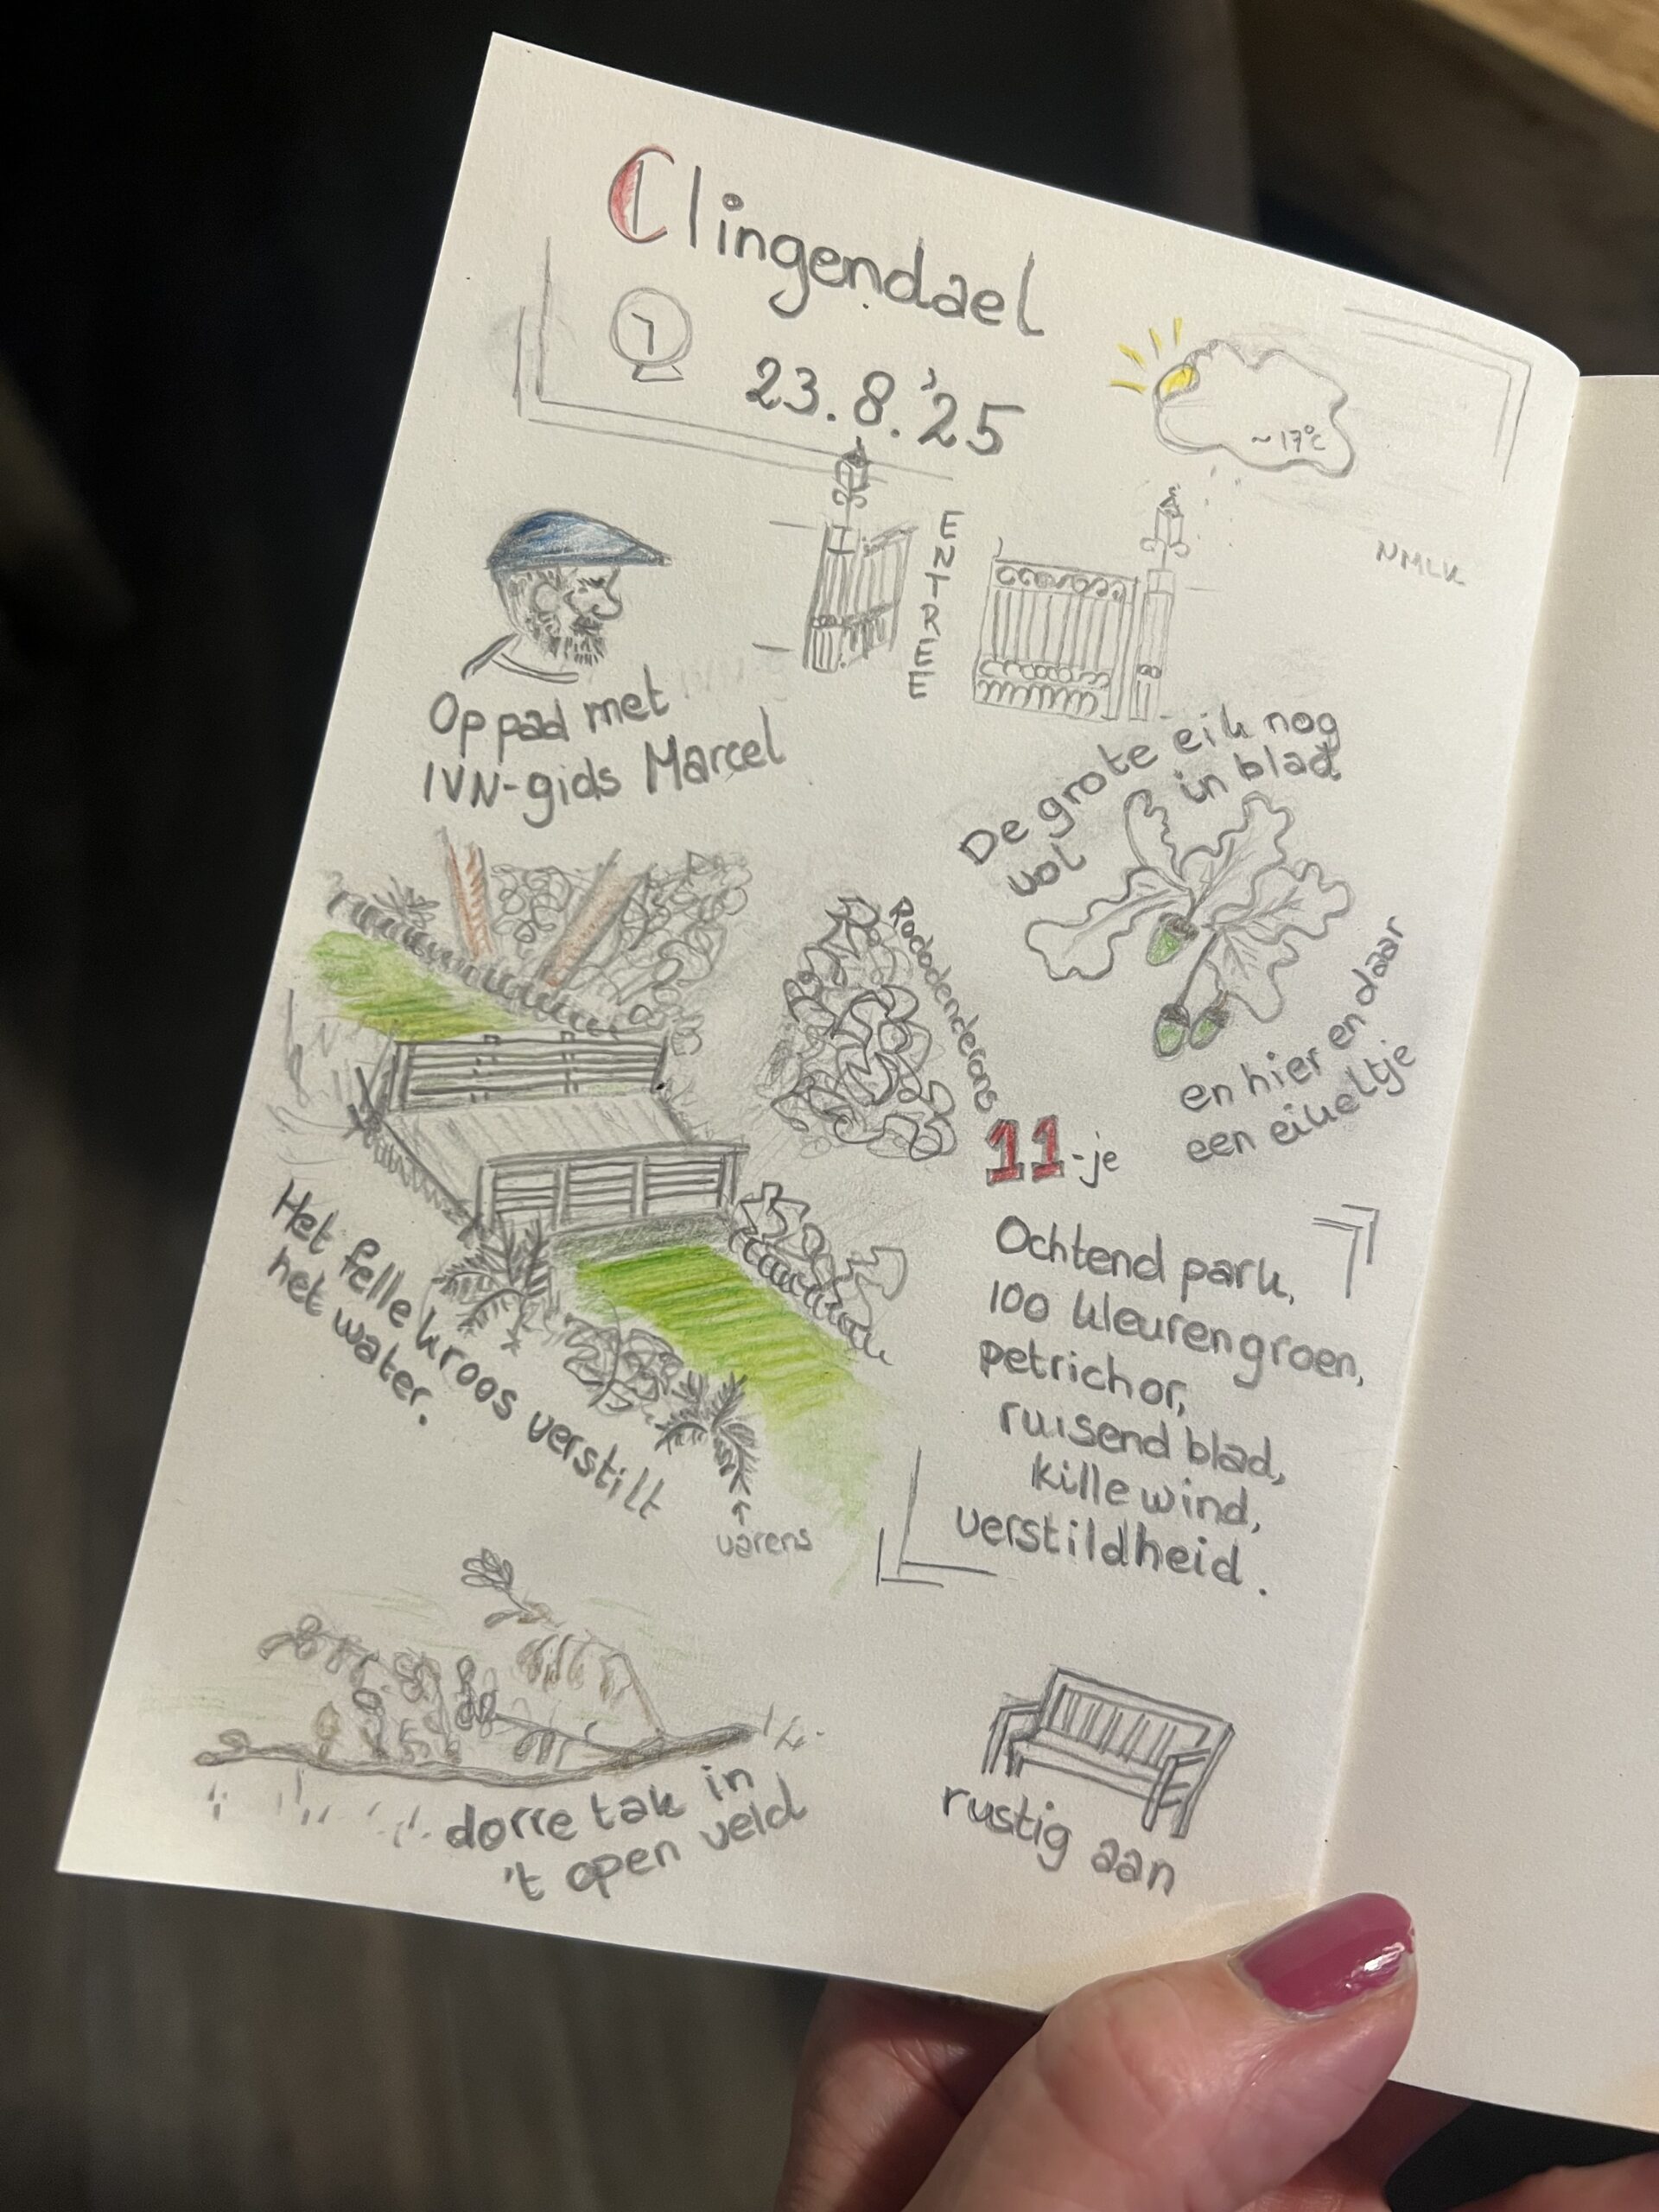 Clingendael
23.8.'25
~17°C
NMLK
ENTREE
Op pad met
IVN-gids Marcel
De grote eik nog
vol in blad
en hier en daar
een eikeltje
Rododenderons
11-je
Ochtend park,
100 kleuren groen,
petrichor,
ruisend blad,
kille wind,
verstildheid.
Het felle kroos verstilt
het water.
varens
dorre tak in
't open veld
rustig aan